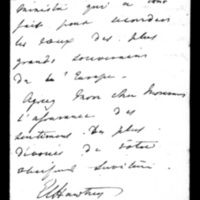 ministre qui a tout
fait pour seconder
les vœux des plus
grands souverains
de l'Europe.
Agreez Mon cher Monsieur
l'assurance des
sentiments les plus
dévoués de votre